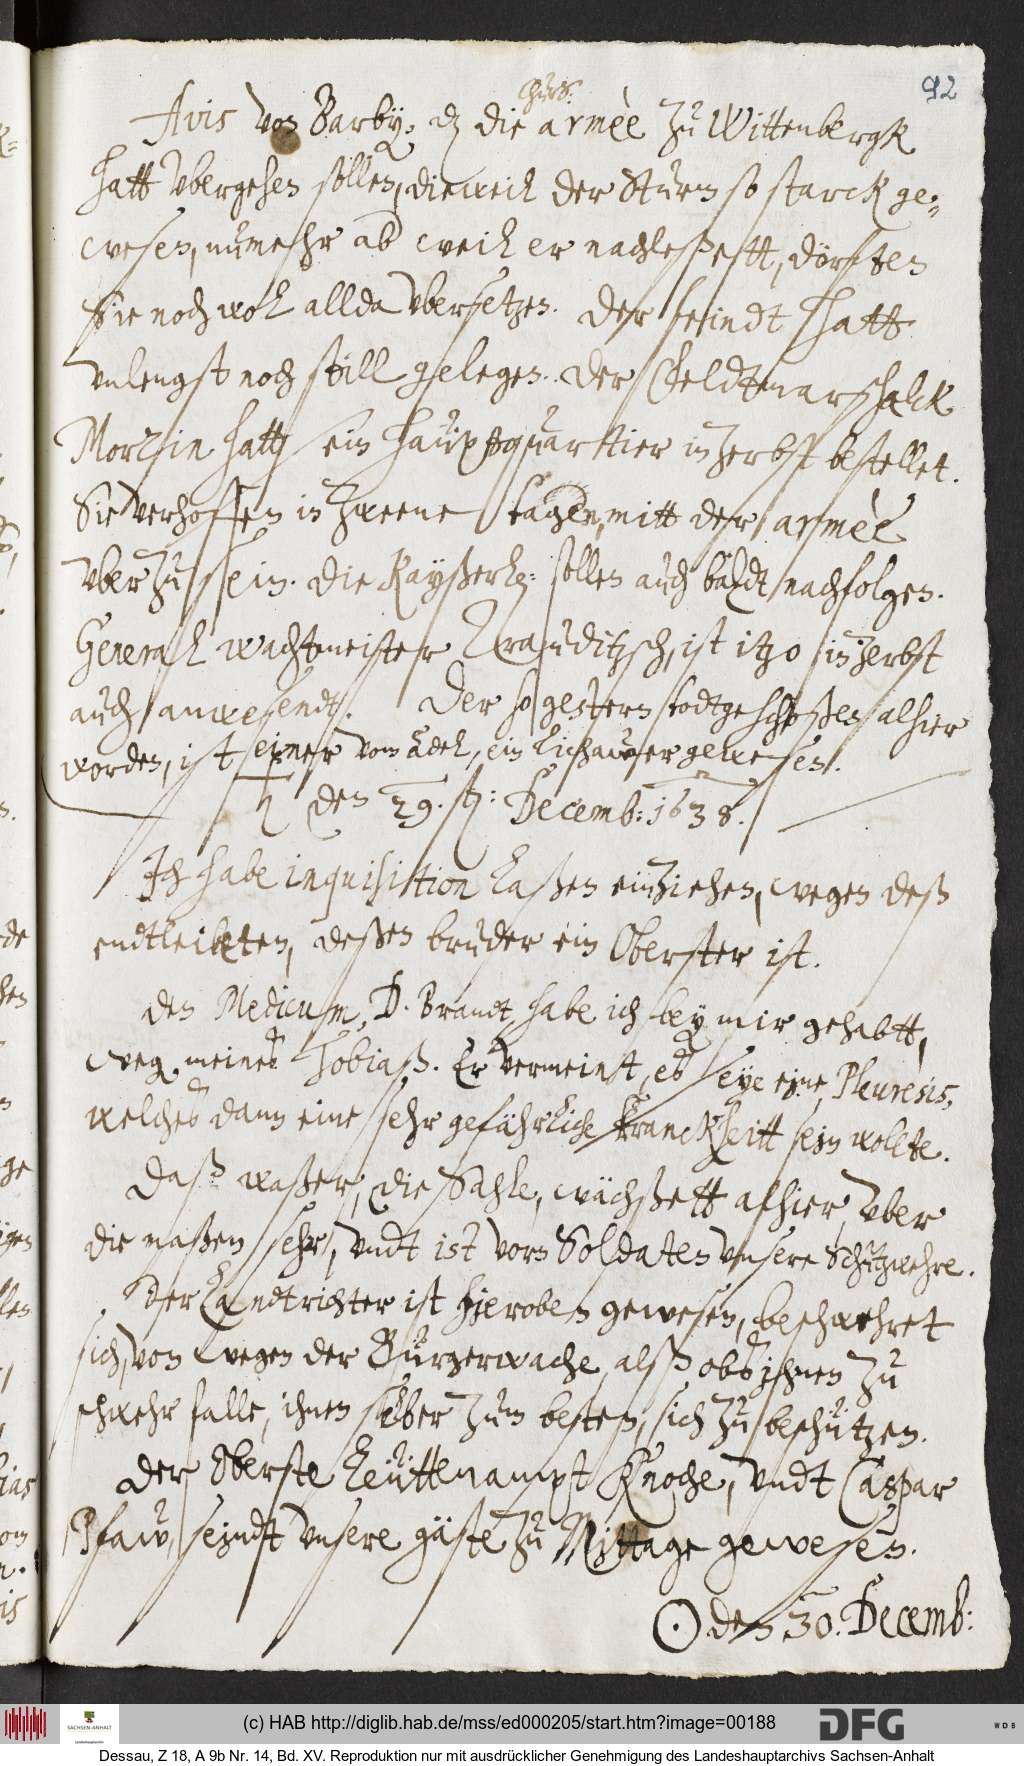 92
Avis von Barby, dz die Churs: armèe zu Wittenbergk
hatt vbergehen sollen, dieweil der Sturm so starck ge-
wesen, nunmehr ab weil er nachleßett, dörften
Sie noch wol allda vbersetzen. Der feindt hatt
vnlengst noch still gelegen. Der Veldtmarschalck
Morzin hatt sein Hauptquartier in Zerbst bestellet.
Sie verhoffen in zweene tagen, mitt der armèe
vber zu sein. Die Kayßerl: sollen auch baldt nachfolgen.
General wachtmeister Trauditzsch, ist itzo in Zerbst
auch anwesendt. Der so gestern todtgeschoßen alhier
worden, ist einer vom Adel, ein Lifhawer gewesen.
♄ den 29. st: Decemb: 1638.
Ich habe inquisition laßen einziehen, wegen deß
endtleibten, deßen bruder ein Oberster ist.
Den Medicum, D. Brandt, habe ich bey mir gehabtt,
weg. meines Thobiaß. Er vermeinet, es seye eine Pleuresis,
welches dann eine sehr gefährliche kranckheitt sein wollte.
Daß waßer, die Sahle, wächßett alhier, vber
die maßen sehr, vndt ist vorn Soldaten vnsere Schutzwehre.
Der Landtrichter ist hieroben gewesen, beschwehret
sich, von wegen der Bürgerwache, alß obs ihnen zu
schwehr falle, ihnen selber zum besten, sich zu beschützen.
Der Oberste Leüttenampt Knoche, vndt Caspar
Pfaw, seindt vnsere gäste zu Mittage gewesen.
☉ den 30. Decemb:
(c) HAB http://diglib.hab.de/mss/ed000205/start.htm?image=00188
SACHSEN-ANHALT
DFG
WDB
Dessau, Z 18, A 9b Nr. 14, Bd. XV. Reproduktion nur mit ausdrücklicher Genehmigung des Landeshauptarchivs Sachsen-Anhalt